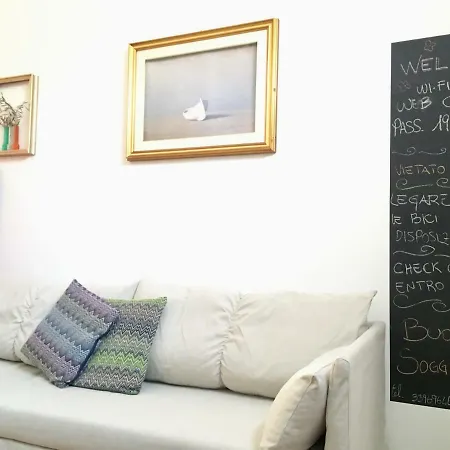 WEL
WI-FI
WEB C
PASS. 19
VIETATO
LEGARE
LE BICI
DISPOSIZ
CHECK O
ENTRO
BUO
SOGG